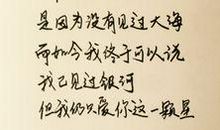 是因为没有见过大海
而如今我终于可以说
我已见过银河
但我仍只爱你这一颗星